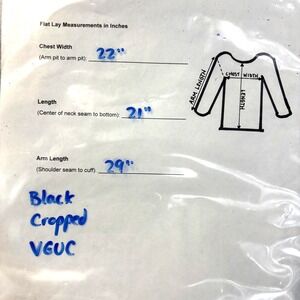 Flat Lay Measurements in Inches
Chest Width
(Arm pit to arm pit): 22"
Length
(Center of neck seam to bottom): 21"
Arm Length
(Shoulder seam to cuff): 29"
Black
Cropped
VGUC
ARM LENGTH
CHEST WIDTH
LENGTH